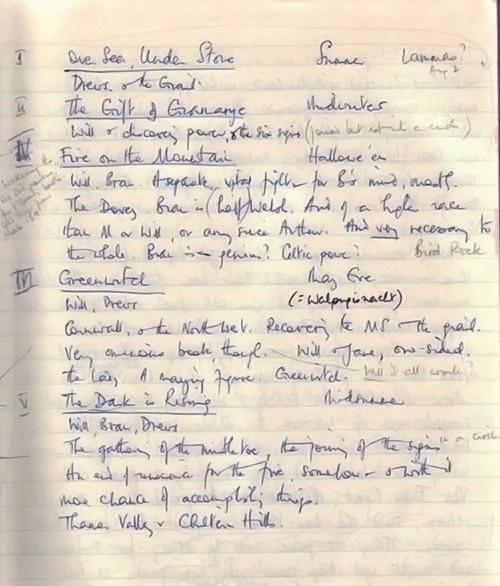 I Over Sea, Under Stone Summer Lammas? Aug 2
Drews & the Grail.
II The Gift of Gramarye Midwinter
Will & discovery power, & the six signs (joined but not in a circle)
Fire on the Mountain Hallowe'en
Will. Bran. A separate, fight for B's mind, mostly.
The Dovey. Bran is (half Welsh. And of a higher race
than M or Will, or any since Arthur. And very necessary to
the whole. Bran is Celtic power? Bird Rock
Greenwitch May Eve
Will, Drews (= Walpurgisnacht)
Cornwall, & the North Wet. Recovering the MS & the grail.
Very book, though. Will & Jane, one-sided.
the Lady. A figure. Greenwitch. Will it all work?
V The Dark is Rising Midsummer
Will, Bran, Drews
The gathering of the mistletoe, the joining of the signs in a circle
An end of for the five, somehow - & with it
more chance of accomplishing things.
Thames Valley & Chiltern Hills.